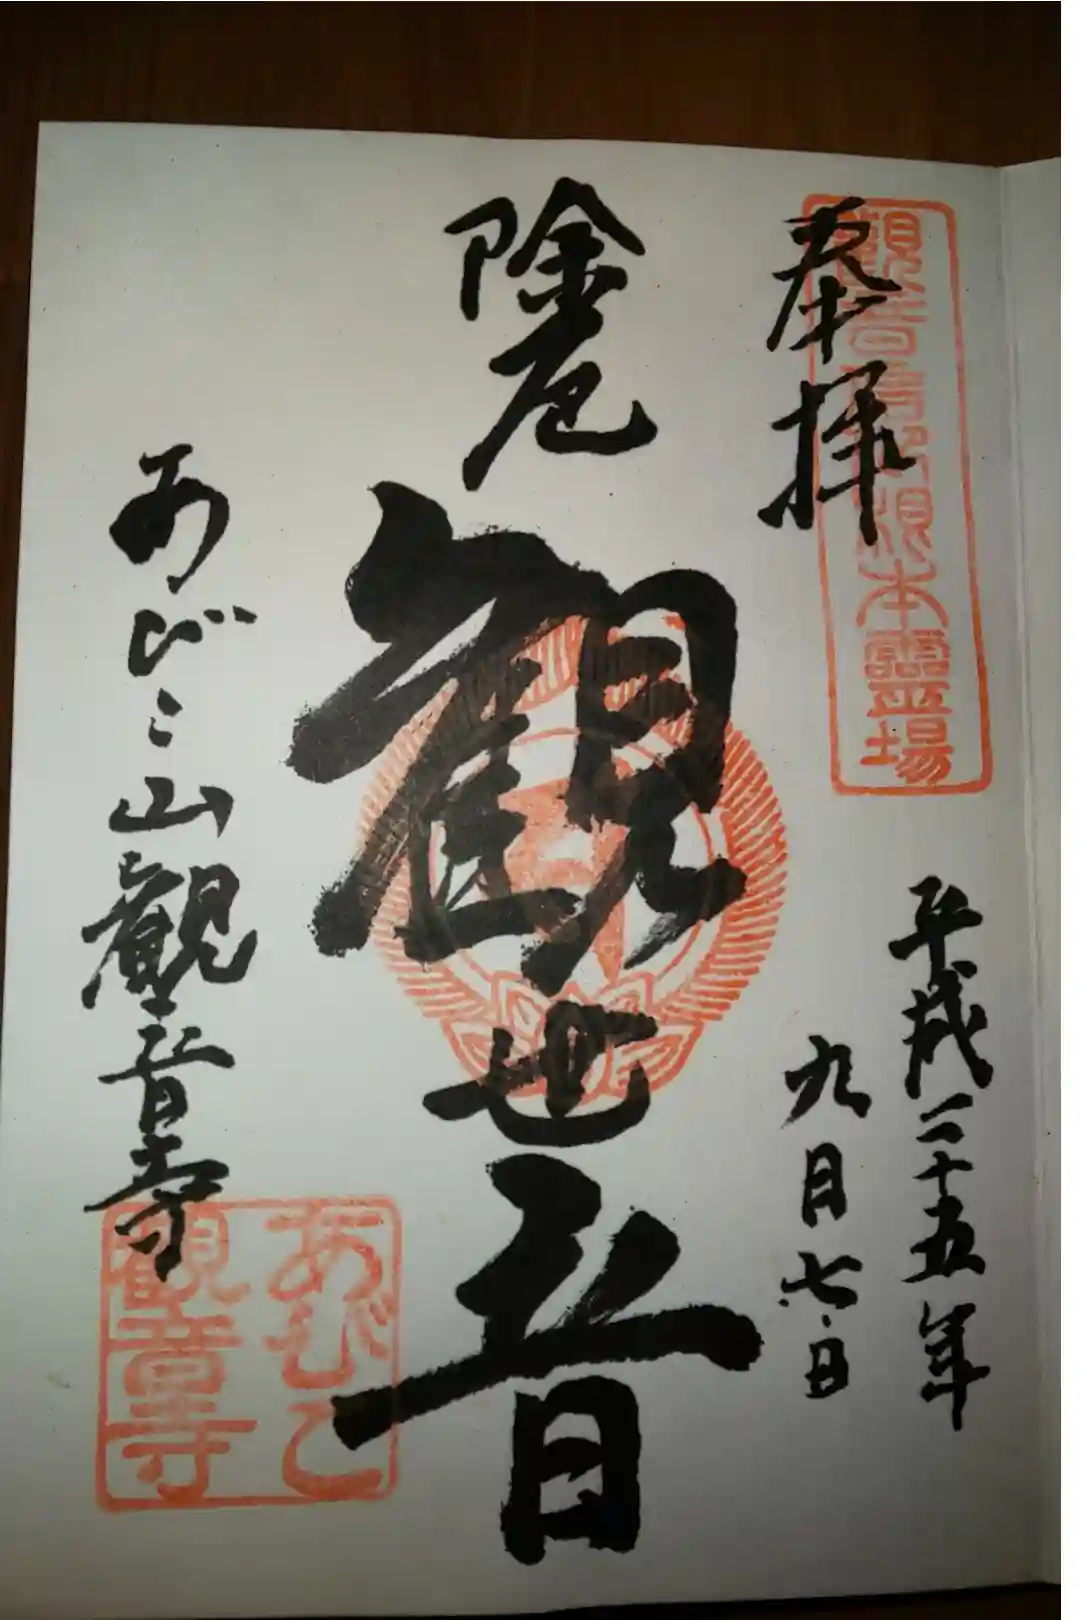 奉拝
觀音
根本靈場
平成二十五年
九月七日
除厄
観世音
あびこ山觀音寺
あびこ
観音寺